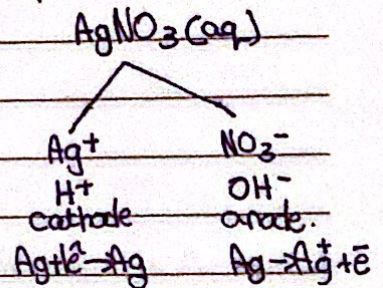 AgNO₃(aq)
Ag⁺ NO₃⁻
H⁺ OH⁻
cathode anode.
Ag+1e⁻→Ag Ag→Ag⁺+e⁻